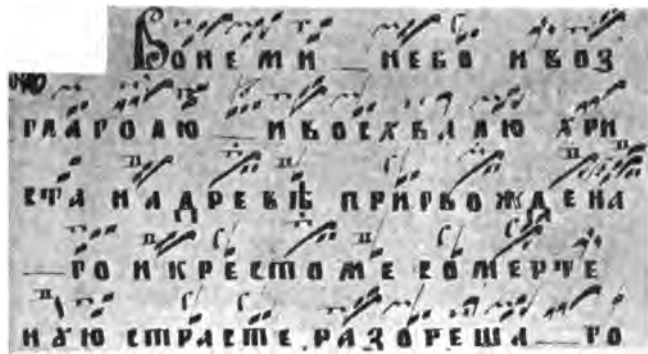 Вонеми небо ивоз
глаголю ивосхвалю хри
ста на древѣ пригвождена
го и крестоме сомерте
нꙋю страсте разореша го